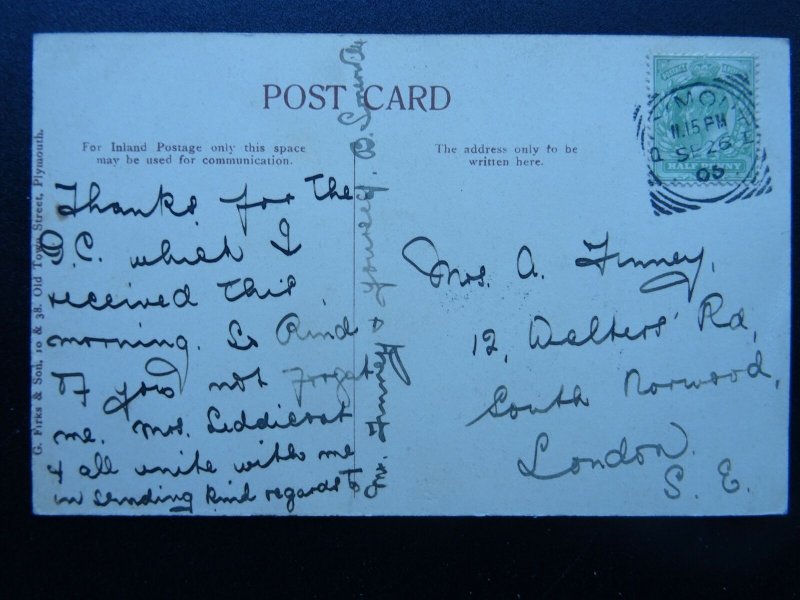 POST CARD
For Inland Postage only this space
may be used for communication.
The address only to be
written here.
G. Firks & Son, 10 & 38, Old Town Street, Plymouth.
HALFPENNY
PLYMOUTH
11.15 PM
SP 26
05
Thanks for the
P.C. which I
received this
morning. So kind
of you not forget
me. Mrs.
& all unite with me
in sending kind regards to
Mr. Finney & yourself.
Mrs. A. Finney,
12, Walters' Rd,
South Norwood,
London.
S. E.